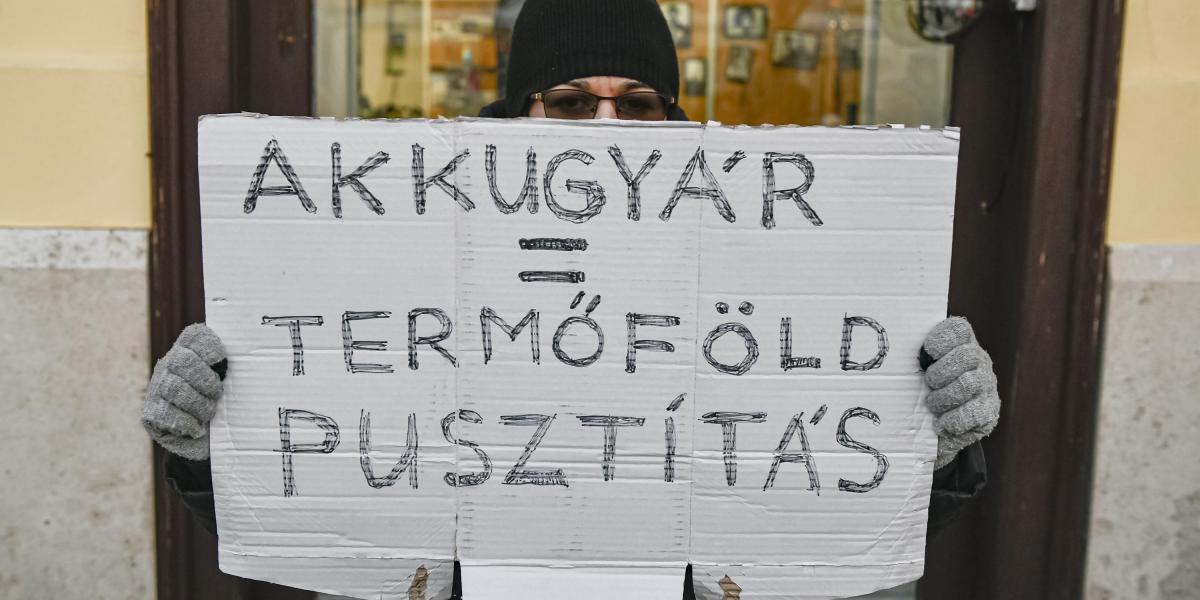 AKKUGYÁR
=
TERMŐFÖLD
PUSZTÍTÁS